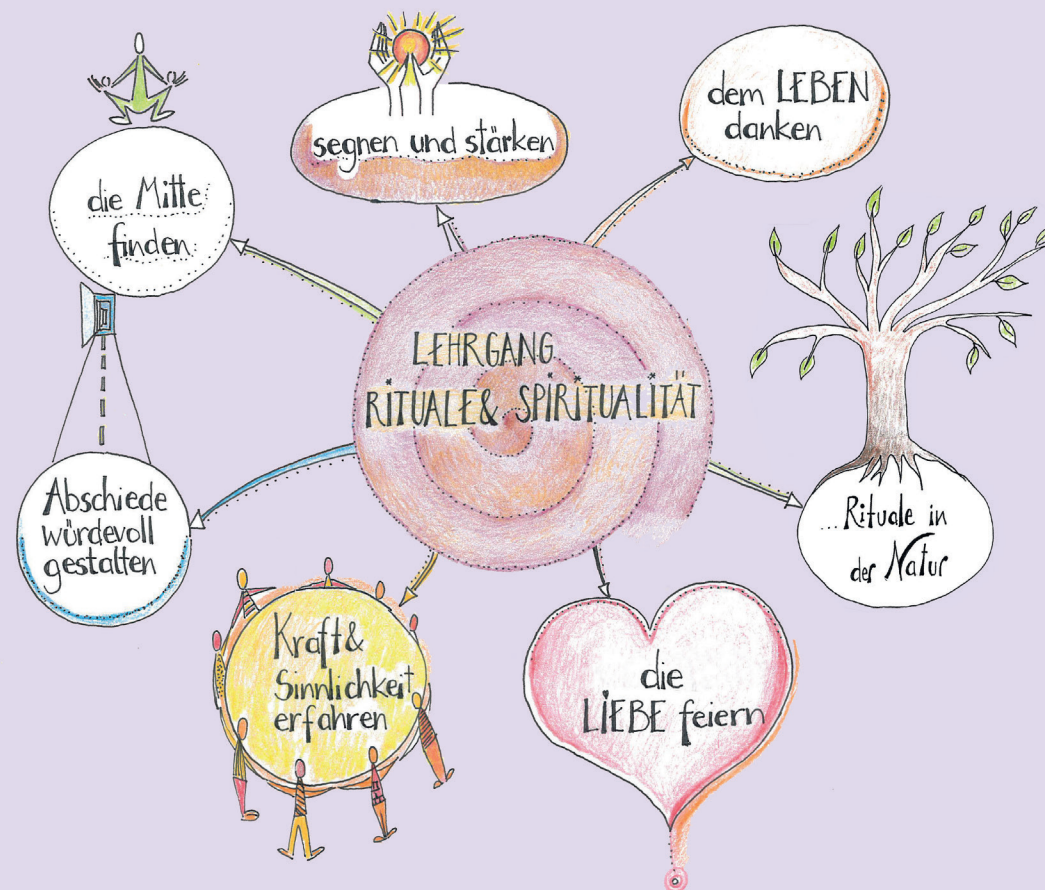 LEHRGANG
RITUALE & SPIRITUALITÄT
die Mitte
finden
segnen und stärken
dem LEBEN
danken
...Rituale in
der Natur
die
LIEBE feiern
Kraft &
Sinnlichkeit
erfahren
Abschiede
würdevoll
gestalten